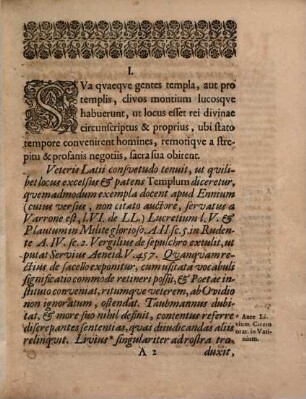 I.
SVa qvaeqve gentes templa, aut pro
templis, clivos montium lucosqve
habuerunt, ut locus esset rei divinae
circumscriptus & proprius, ubi stato
tempore convenirent homines, remotiqve a stre-
pitu & profanis negotiis, sacra sua obirent.
Veteris Latii consvetudo tenuit, ut qvili-
bet locus excelsus & patens Templum diceretur,
qvemadmodum exempla docent apud Ennium
(cuius versus, non citato auctore, servatus a
Varrone est, l. VI. de LL.) Lucretium l. V. &
Plautum in Milite glorioso. A. II sc. 5. in Rudente
A. IV. sc. 2. Vergilius de sepulchro extulit, ut
putat Servius Aeneid. V. 457. Qvanqvam re-
ctius de sacello exponitur, cum usitata vocabuli
significatio commode retineri possit, & Poetae in-
stituto conveniat, ritumqve veterem, ab Ovidio
non ignoratum, ostendat. Taubmannus dubi-
tat, & more suo nihil definit, contentus referre
discrepantes sententias, qvas diiudicandas aliis
relinqvit. Livius * singulariter ad rostra tra-
* Ante Li-
vium Cicero
orat. in Vati-
nium.
A 2
duxit,